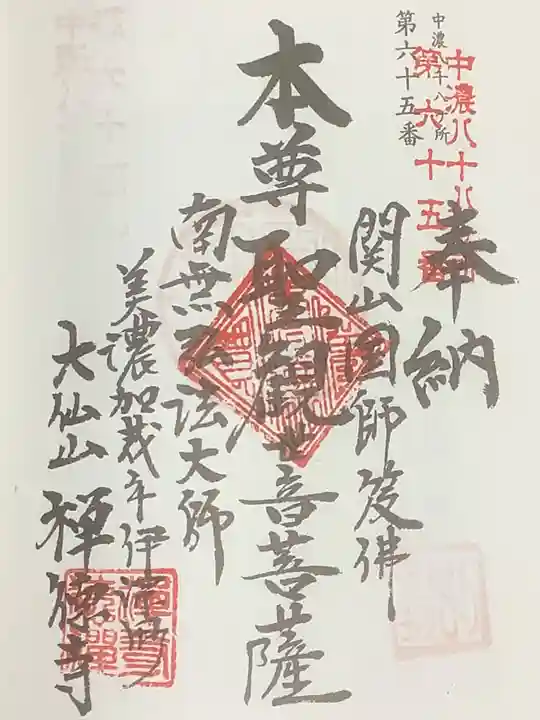 中濃八十八ヶ所
第六十五番
中濃八十八
第六十五番
奉納
関山国師笈佛
本尊聖観世音菩薩
南無弘法大師
美濃加茂市伊深町
大仙山禅徳寺